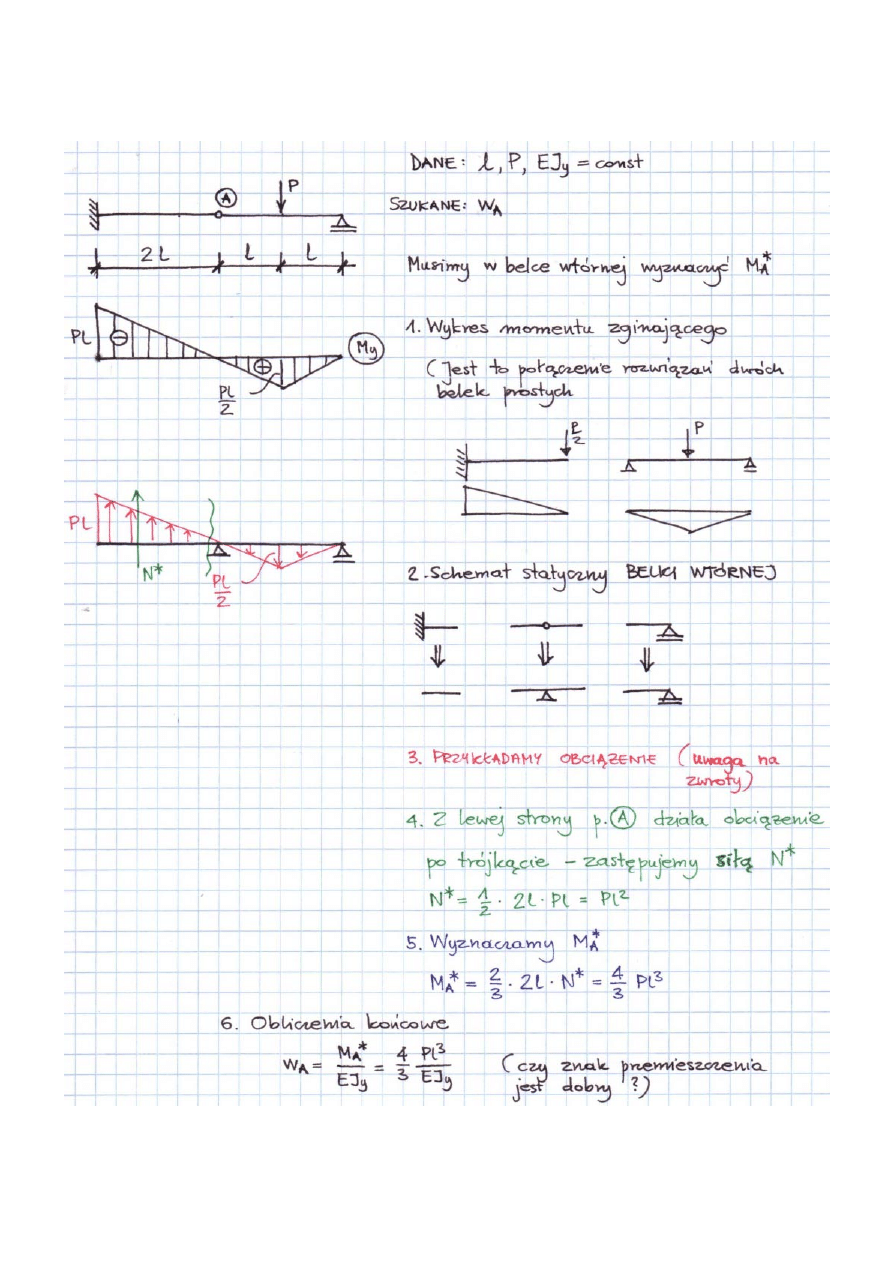 DANE: l, P, EJy = const
SZUKANE: WA
A
P
2l l l
Musimy w belce wtórnej wyznaczyć MA*
Pl
⊖
⊕
My
Pl/2
1. Wykres momentu zginającego
(Jest to połączenie rozwiązań dwóch
belek prostych
P/2
P
Pl
N*
Pl/2
2. Schemat statyczny BELKI WTÓRNEJ
3. PRZYKŁADAMY OBCIĄŻENIE (uwaga na
zwroty)
4. Z lewej strony p. A działa obciążenie
po trójkącie – zastępujemy siłą N*
N* = 1/2 · 2l · Pl = Pl²
5. Wyznaczamy MA*
MA* = 2/3 · 2l · N* = 4/3 Pl³
6. Obliczenia końcowe
WA = MA*/EJy = 4/3 Pl³/EJy (czy znak przemieszczenia
jest dobry ?)